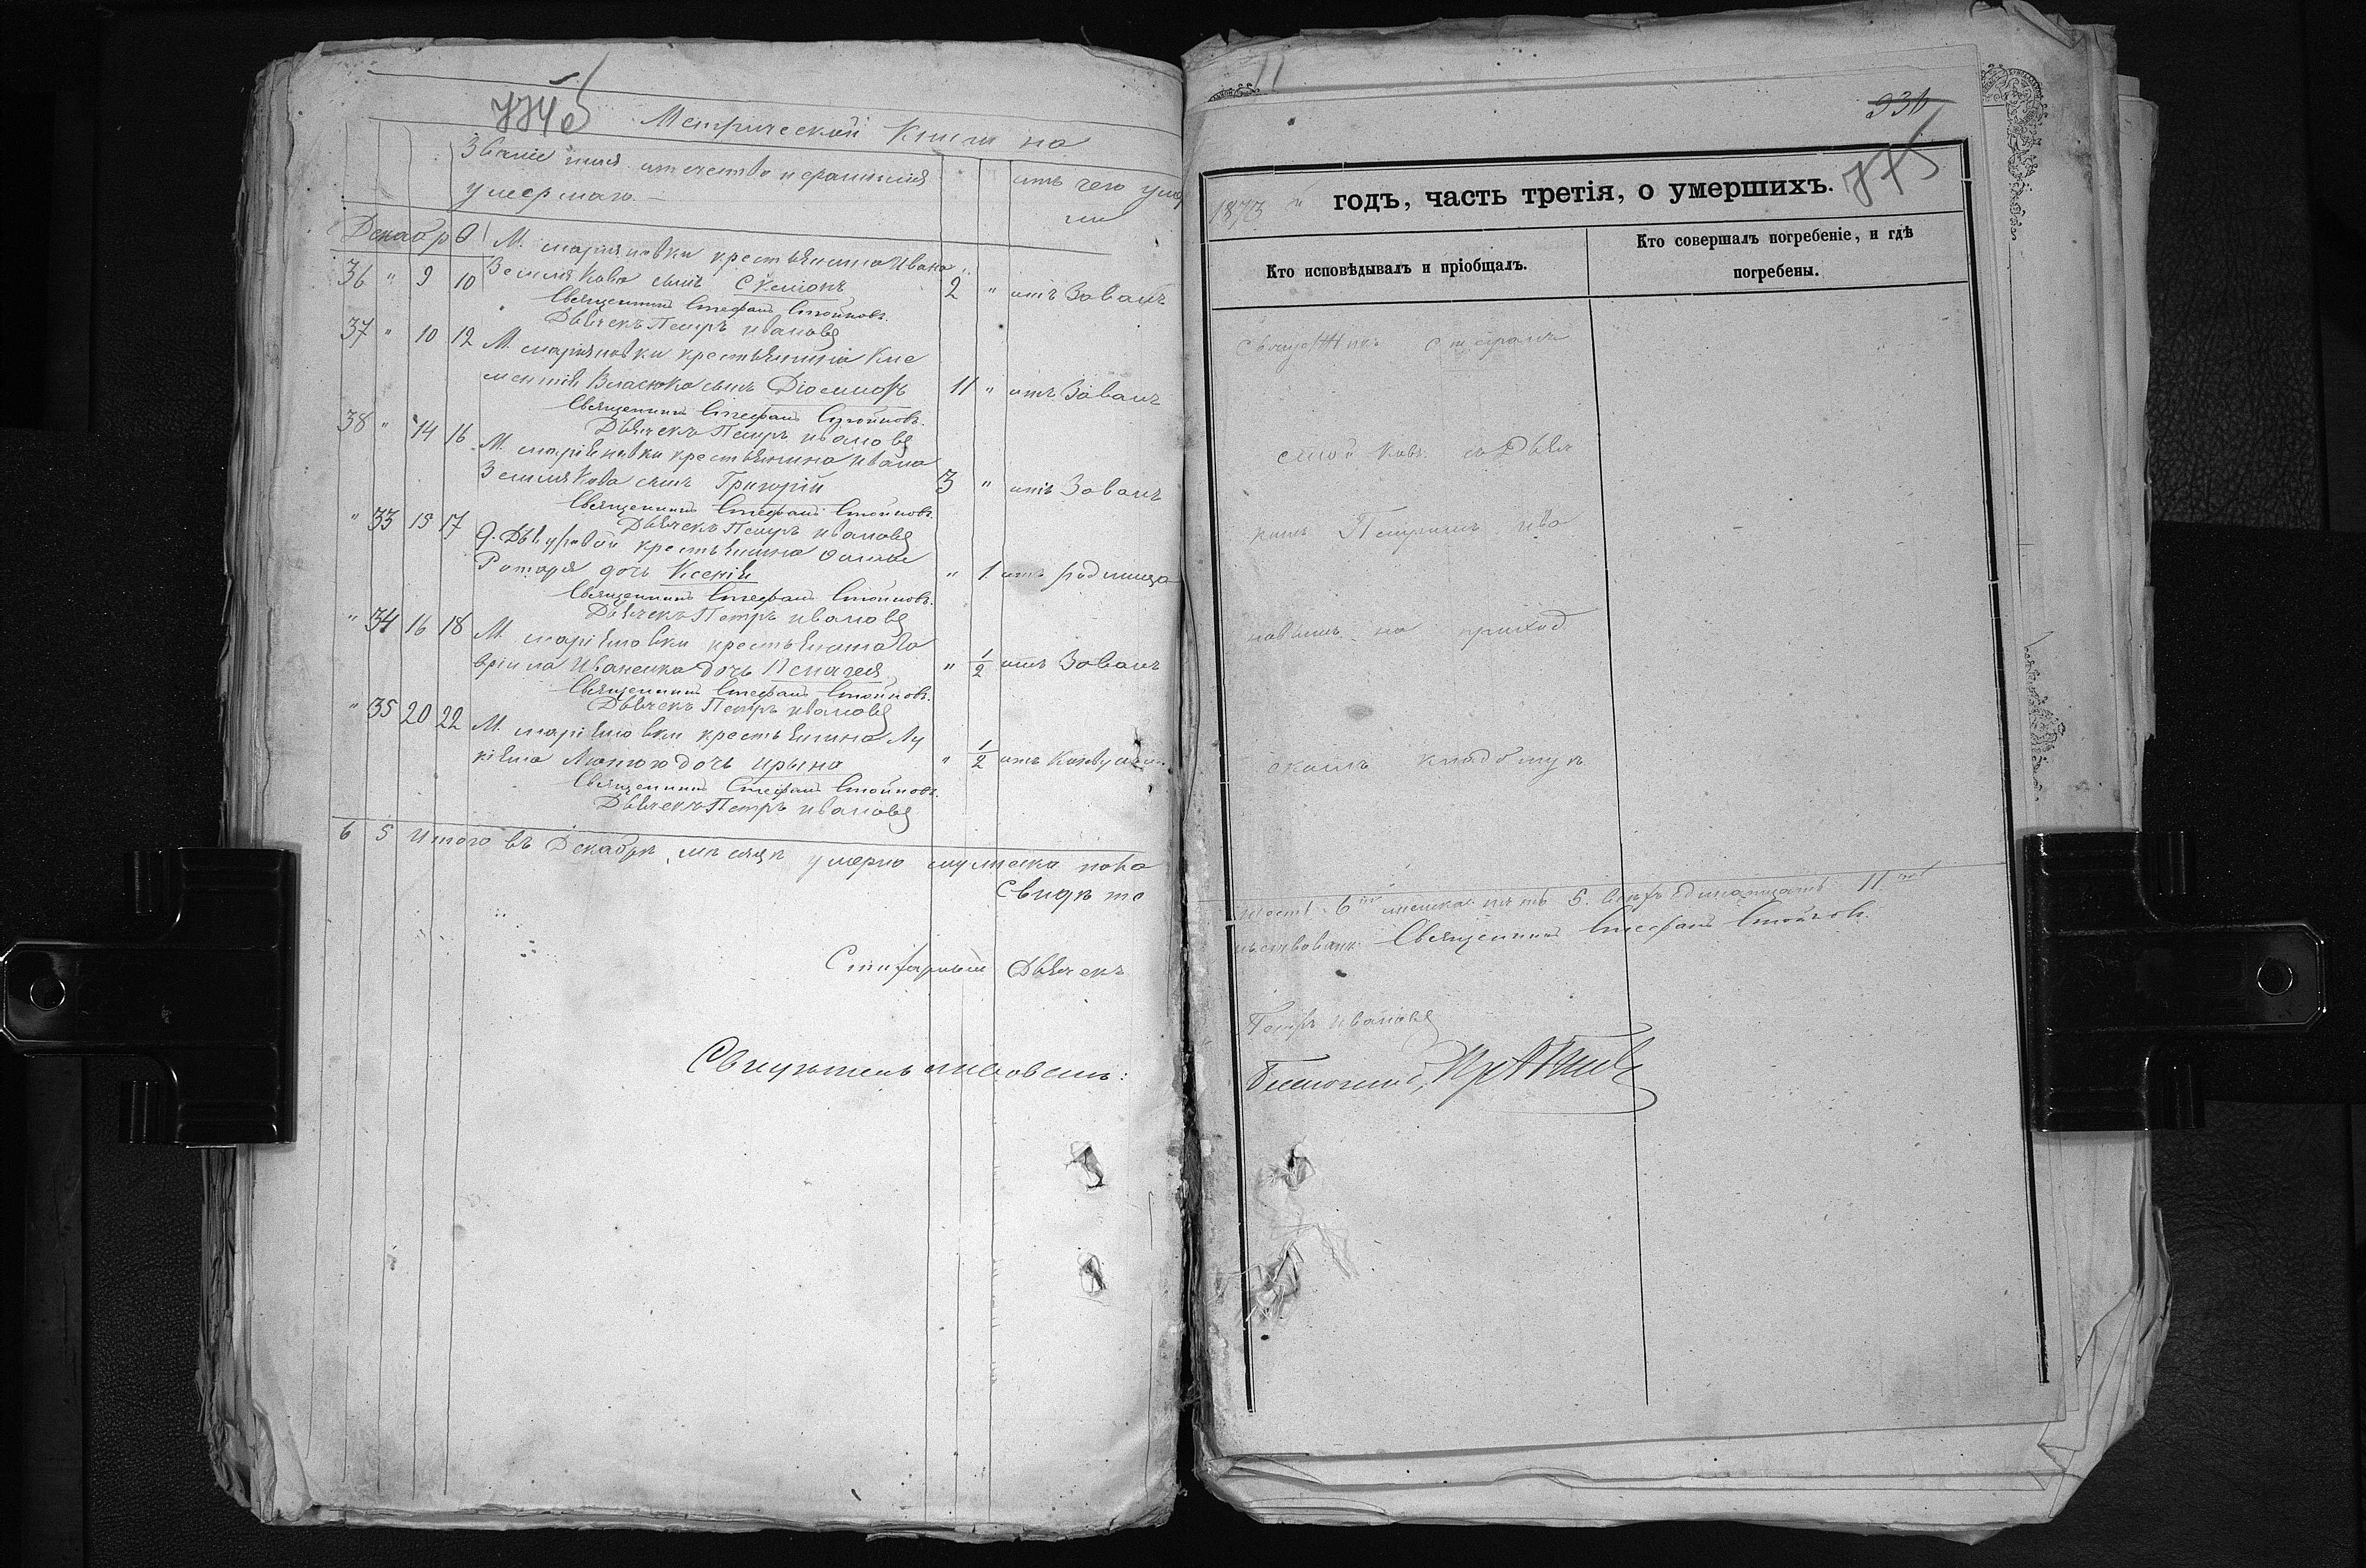 774 об
Метрической Книги на
Званіе имя отечество и фамилія
умершаго.
отъ чего умер
ли
Декабрѣ
М. Маріяновки крестьянина Ивана
36 " 9 10 Землякова сынъ Симеонъ 2 " отъ Зовалъ
Священникъ Стефанъ Стойковъ.
Дьячекъ Петръ Ивановъ
37 " 10 12 М. Маріяновки крестьянина Кле
ментія Власюка сынъ 11 " отъ Зовалъ
Священникъ Стефанъ Стойковъ.
Дьячекъ Петръ Ивановъ
38 " 14 16 М. Маріяновки крестьянина Ивана
Землякова сынъ Григорій 3 " отъ Зовалъ
Священникъ Стефанъ Стойковъ.
Дьячекъ Петръ Ивановъ
" 33 15 17 крестьянина
Ротаря дочь Ксенія " 1 отъ родимца
Священникъ Стефанъ Стойковъ.
Дьячекъ Петръ Ивановъ
" 34 16 18 М. Маріяновки крестьянина Га
вріила Иваненка дочь Пелагея " 1/2 отъ Зовалъ
Священникъ Стефанъ Стойковъ.
Дьячекъ Петръ Ивановъ
" 35 20 22 М. Маріяновки крестьянина Лу
кіяна дочь Ирына " 1/2 отъ
Священникъ Стефанъ Стойковъ.
Дьячекъ Петръ Ивановъ
6 5 Итого въ Декабрѣ мѣсяцѣ умерло мужеска пола
Свидѣте
Стихарный Дьячекъ
Свидѣтельствовалъ:
934
775
1873 й годъ, часть третія, о умершихъ.
Кто исповѣдывалъ и пріобщалъ.
Кто совершалъ погребеніе, и гдѣ
погребены.
Священникъ Стефанъ
Стойковъ съ Дьяч
комъ Петромъ Ива
новымъ на приход
скомъ кладбищѣ
шесть 6 женска пять 5. всѣхъ одинадцать 11
льствовали Священникъ Стефанъ Стойковъ.
Петръ Ивановъ
Благочинный,